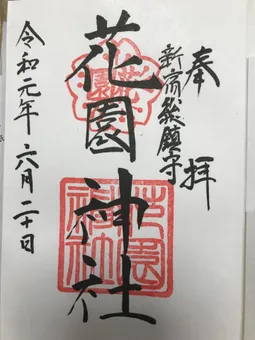 奉拝
新宿総鎮守
花園神社
令和元年六月二十日
花園
花園神社